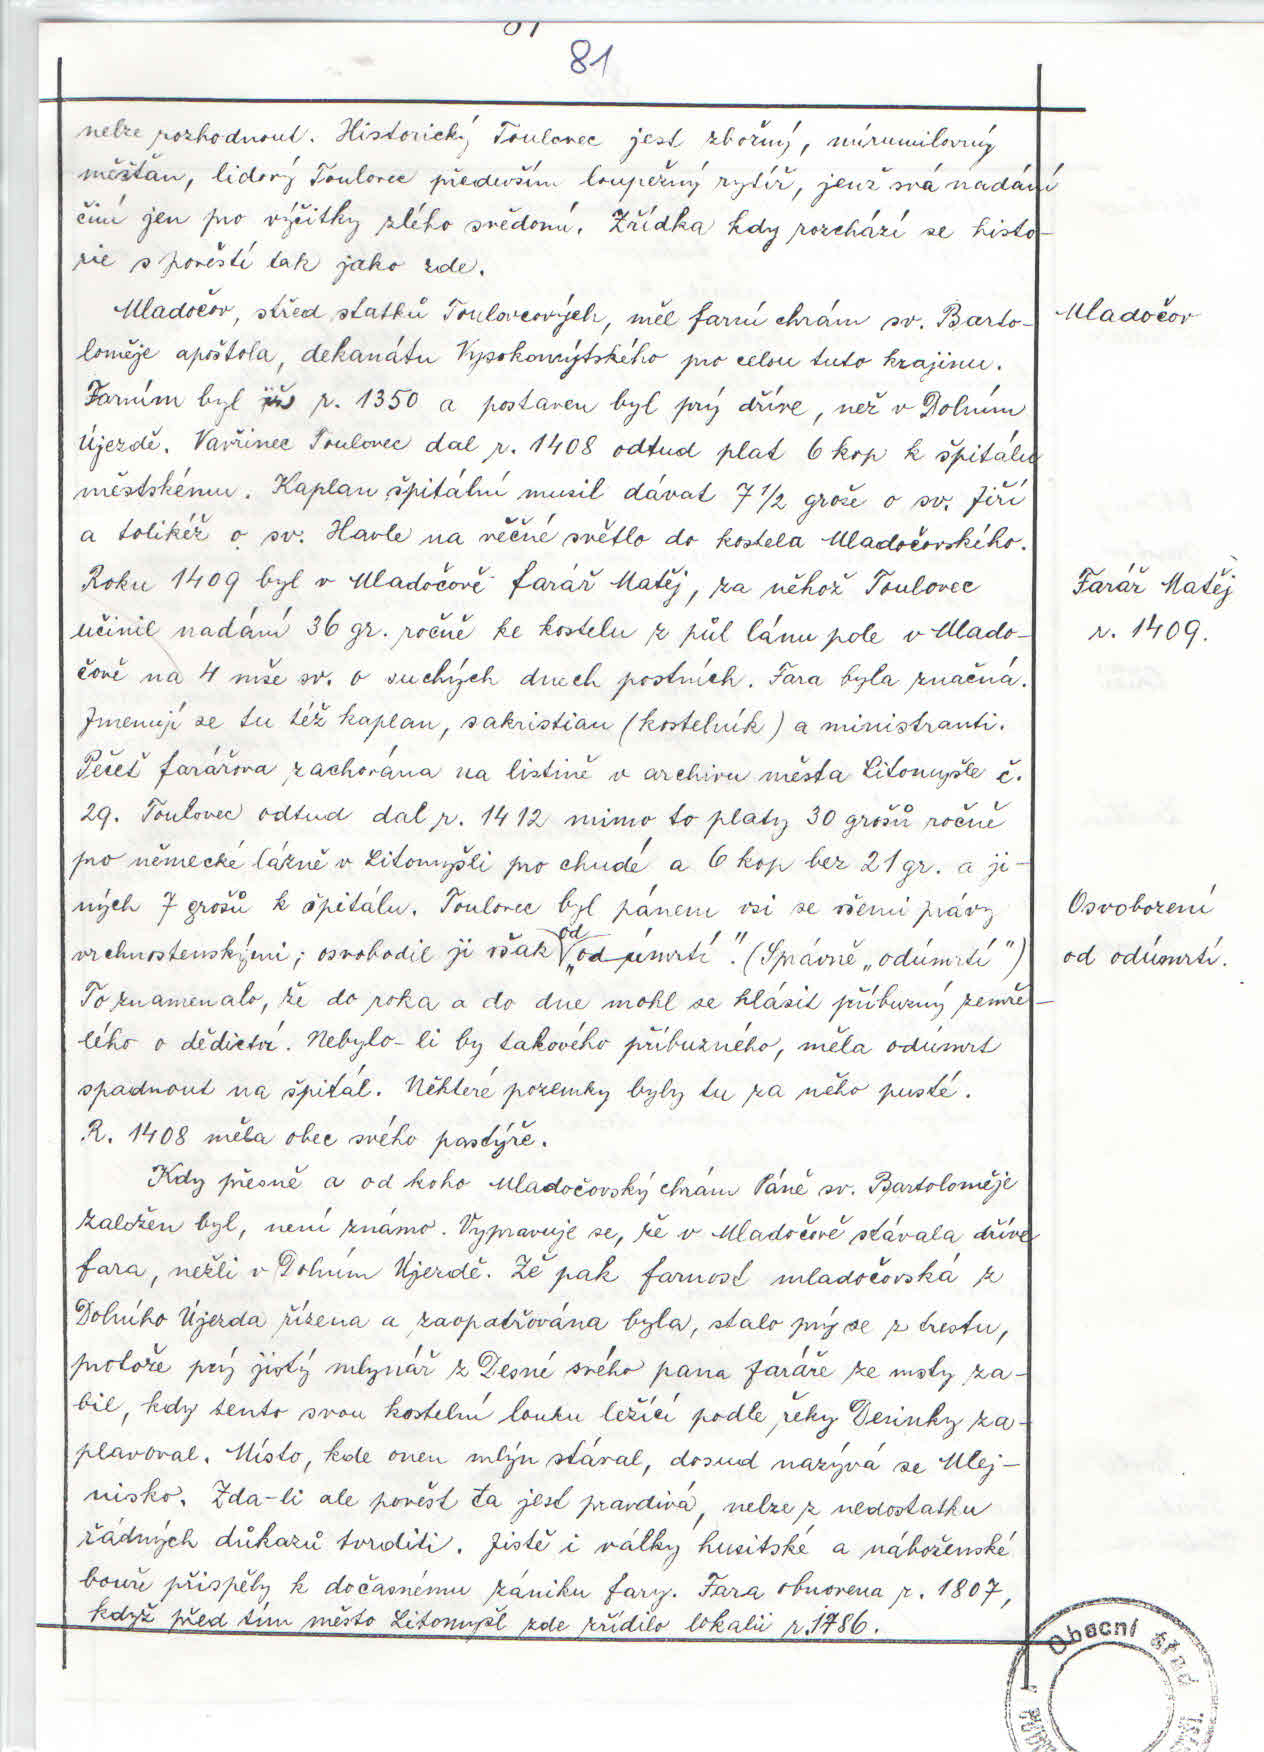 81
nelze rozhodnout. Historický Toulovec jest zbožný, mírumilovný
měšťan, lidový Toulovec především loupežný rytíř, jenž svá nadání
činí jen pro výčitky zlého svědomí. Zřídka kdy rozchází se histo-
rie s pověstí tak jako zde.
Mladočov, střed statků Toulovcových, měl farní chrám sv. Barto-
Mladočov
loměje apoštola, dekanátu Vysokomýtského pro celou tuto krajinu.
Farním byl již r. 1350 a postaven byl prý dříve, než v Dolním
Újezdě. Vavřinec Toulovec dal r. 1408 odtud plat 6 kop k špitálu
městskému. Kaplan špitální musil dávat 7 1/2 groše o sv. Jiří
a tolikéž o sv. Havle na věčné světlo do kostela Mladočovského.
Roku 1409 byl v Mladočově farář Matěj, za něhož Toulovec
Farář Matěj
učinil nadání 36 gr. ročně ke kostelu z půl lánu pole v Mlado-
r. 1409.
čově na 4 mše sv. o suchých dnech postních. Fara byla značná.
Jmenují se tu též kaplan, sakristian (kostelník) a ministranti.
Pečeť farářova zachována na listině v archivu města Litomyšle č.
29. Toulovec odtud dal r. 1412 mimo to platy 30 grošů ročně
pro německé lázně v Litomyšli pro chudé a 6 kop bez 21 gr. a ji-
ných 7 grošů k špitálu. Toulovec byl pánem vsi se všemi právy
Osvobození
vrchnostenskými; osvobodil ji však „od úmrtí". (Správně „odúmrtí")
od odúmrtí.
To znamenalo, že do roka a do dne mohl se hlásit příbuzný zemře-
lého o dědictví. Nebylo-li by takového příbuzného, měla odúmrt
spadnout na špitál. Některé pozemky byly tu za něho pusté.
R. 1408 měla obec svého pastýře.
Kdy přesně a od koho Mladočovský chrám Páně sv. Bartoloměje
založen byl, není známo. Vypravuje se, že v Mladočově stávala dříve
fara, nežli v Dolním Újezdě. Že pak farnost mladočovská z
Dolního Újezda řízena a zaopatřována byla, stalo prý se z trestu,
protože prý jistý mlynář z Desné svého pana faráře ze msty za-
bil, kdy tento svou kostelní louku ležící podle řeky Desinky za-
plavoval. Místo, kde onen mlýn stával, dosud nazývá se Mlej-
nisko. Zda-li ale pověst ta jest pravdivá, nelze z nedostatku
řádných důkazů tvrditi. Jistě i války husitské a náboženské
bouře přispěly k dočasnému zániku fary. Fara obnovena r. 1807,
když před tím město Litomyšl zde zřídilo lokalii r. 1786.
Obecní úřad